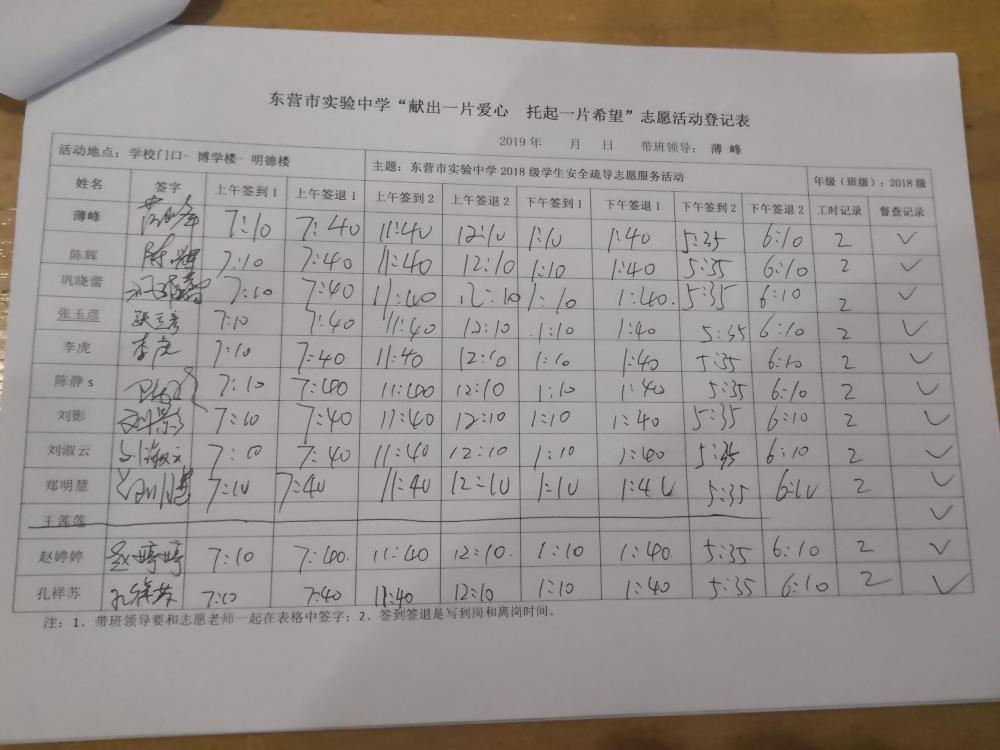 东营市实验中学“献出一片爱心 托起一片希望”志愿活动登记表
2019年 月 日 带班领导：薄峰
活动地点：学校门口- 博学楼- 明德楼 主题：东营市实验中学2018级学生安全疏导志愿服务活动 年级（班级）：2018级
姓名 签字 上午签到1 上午签退1 上午签到2 上午签退2 下午签到1 下午签退1 下午签到2 下午签退2 工时记录 督查记录
薄峰 薄峰 7:10 7:40 11:40 12:10 1:10 1:40 5:35 6:10 2 ✓
陈辉 陈辉 7:10 7:40 11:40 12:10 1:10 1:40 5:35 6:10 2 ✓
巩晓蕾 巩晓蕾 7:10 7:40 11:40 12:10 1:10 1:40. 5:35 6:10 2 ✓
张玉彦 张玉彦 7:10 7:40 11:40 12:10 1:10 1:40 5:35 6:10 2 ✓
李虎 李虎 7:10 7:40 11:40 12:10 1:10 1:40 5:35 6:10 2 ✓
陈静s 7:10 7:40 11:40 12:10 1:10 1:40 5:35 6:10 2 ✓
刘影 刘影 7:10 7:40 11:40 12:10 1:10 1:40 5:35 6:10 2 ✓
刘淑云 刘淑云 7:10 7:40 11:40 12:10 1:10 1:40 5:35 6:10 2 ✓
郑明慧 7:10 7:40 11:40 12:10 1:10 1:40 5:35 6:10 2 ✓
王莲莲 ✓
赵婷婷 赵婷婷 7:10 7:40. 11:40 12:10. 1:10 1:40. 5:35 6:10 2 ✓
孔祥苏 孔祥苏 7:10 7:40 11:40 12:10 1:10 1:40 5:35 6:10 2 ✓
注：1、带班领导要和志愿老师一起在表格中签字；2、签到签退是写到岗和离岗时间。